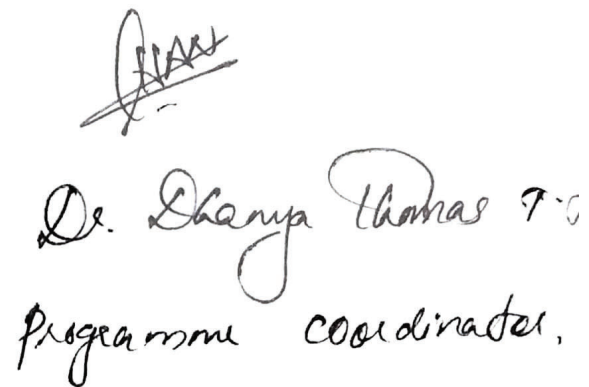 Dr. Dhanya Thomas T.
Programme coordinator,